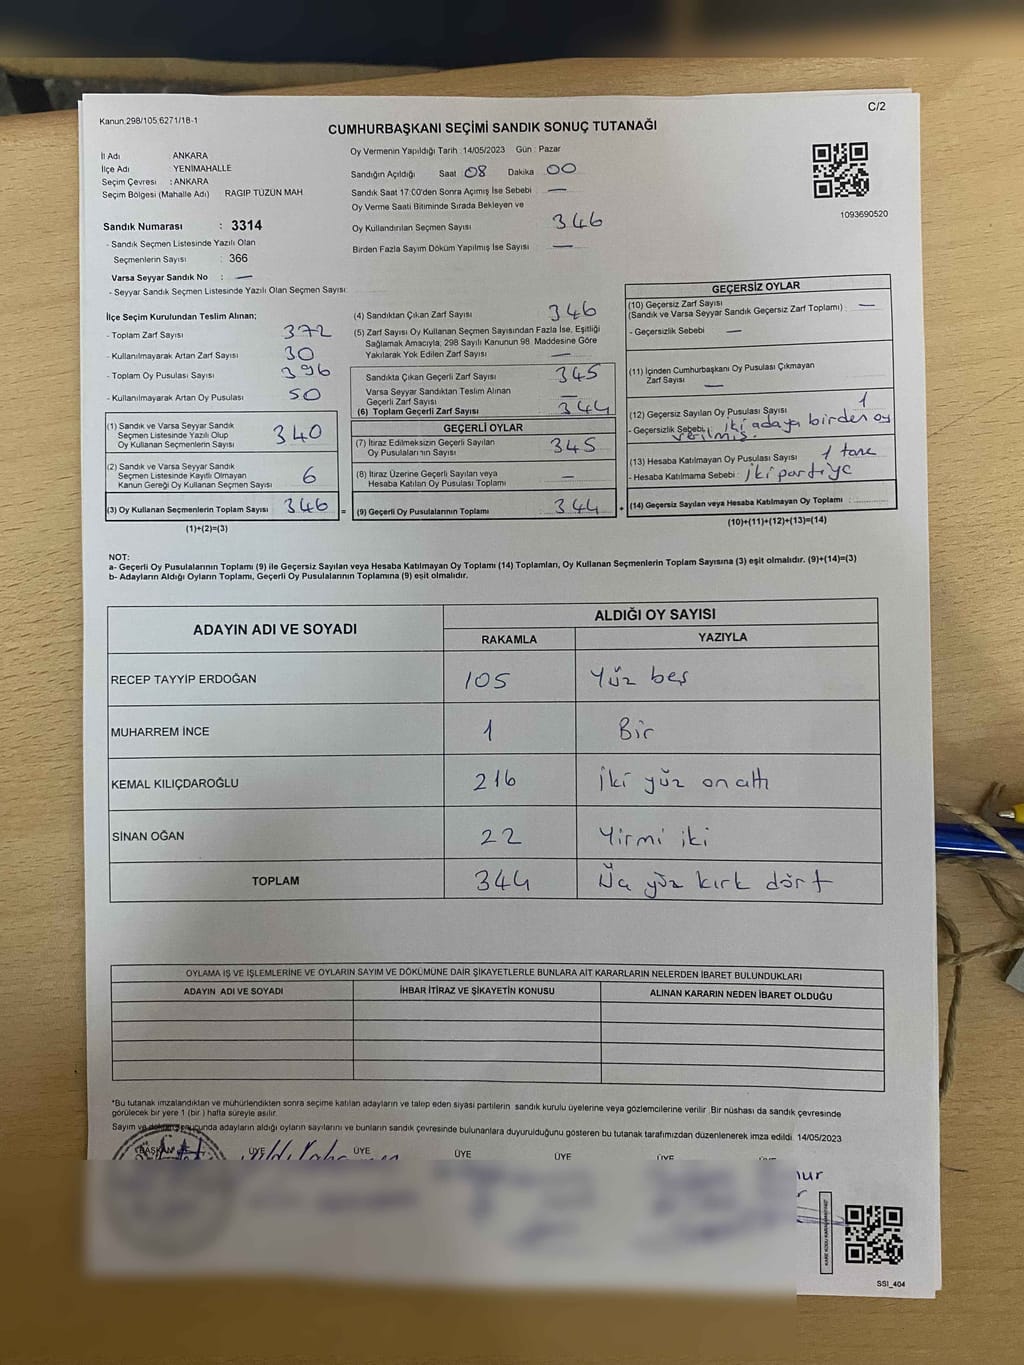 Kanun.298/105,6271/18-1
C/2
CUMHURBAŞKANI SEÇİMİ SANDIK SONUÇ TUTANAĞI
İl Adı : ANKARA
İlçe Adı : YENİMAHALLE
Seçim Çevresi : ANKARA
Seçim Bölgesi (Mahalle Adı) RAGIP TÜZÜN MAH.
Sandık Numarası : 3314
- Sandık Seçmen Listesinde Yazılı Olan
Seçmenlerin Sayısı : 366
Varsa Seyyar Sandık No : —
- Seyyar Sandık Seçmen Listesinde Yazılı Olan Seçmen Sayısı:
Oy Vermenin Yapıldığı Tarih : 14/05/2023 Gün : Pazar
Sandığın Açıldığı Saat 08 Dakika 00
Sandık Saat 17:00'den Sonra Açımış İse Sebebi : —
Oy Verme Saati Bitiminde Sırada Bekleyen ve
Oy Kullandırılan Seçmen Sayısı : 346
Birden Fazla Sayım Döküm Yapılmış İse Sayısı : —
1093690520
İlçe Seçim Kurulundan Teslim Alınan;
- Toplam Zarf Sayısı : 372
- Kullanılmayarak Artan Zarf Sayısı : 30
- Toplam Oy Pusulası Sayısı : 396
- Kullanılmayarak Artan Oy Pusulası : 50
(1) Sandık ve Varsa Seyyar Sandık
Seçmen Listesinde Yazılı Olup
Oy Kullanan Seçmenlerin Sayısı : 340
(2) Sandık ve Varsa Seyyar Sandık
Seçmen Listesinde Kayıtlı Olmayan
Kanun Gereği Oy Kullanan Seçmen Sayısı : 6
(3) Oy Kullanan Seçmenlerin Toplam Sayısı : 346 =
(1)+(2)=(3)
(4) Sandıktan Çıkan Zarf Sayısı : 346
(5) Zarf Sayısı Oy Kullanan Seçmen Sayısından Fazla İse, Eşitliği
Sağlamak Amacıyla, 298 Sayılı Kanunun 98. Maddesine Göre
Yakılarak Yok Edilen Zarf Sayısı : —
Sandıkta Çıkan Geçerli Zarf Sayısı : 345
Varsa Seyyar Sandıktan Teslim Alınan
Geçerli Zarf Sayısı : —
(6) Toplam Geçerli Zarf Sayısı : 344
GEÇERLİ OYLAR
(7) İtiraz Edilmeksizin Geçerli Sayılan
Oy Pusulalarının Sayısı : 345
(8) İtiraz Üzerine Geçerli Sayılan veya
Hesaba Katılan Oy Pusulası Toplamı : —
(9) Geçerli Oy Pusulalarının Toplamı : 344 +
GEÇERSİZ OYLAR
(10) Geçersiz Zarf Sayısı
(Sandık ve Varsa Seyyar Sandık Geçersiz Zarf Toplamı) : —
- Geçersizlik Sebebi : —
(11) İçinden Cumhurbaşkanı Oy Pusulası Çıkmayan
Zarf Sayısı : —
(12) Geçersiz Sayılan Oy Pusulası Sayısı : 1
- Geçersizlik Sebebi : iki adaya birden oy
verilmiş.
(13) Hesaba Katılmayan Oy Pusulası Sayısı : 1 tane
- Hesaba Katılmama Sebebi : iki partiye
(14) Geçersiz Sayılan veya Hesaba Katılmayan Oy Toplamı :
(10)+(11)+(12)+(13)=(14)
NOT:
a- Geçerli Oy Pusulalarının Toplamı (9) ile Geçersiz Sayılan veya Hesaba Katılmayan Oy Toplamı (14) Toplamları, Oy Kullanan Seçmenlerin Toplam Sayısına (3) eşit olmalıdır. (9)+(14)=(3)
b- Adayların Aldığı Oyların Toplamı, Geçerli Oy Pusulalarının Toplamına (9) eşit olmalıdır.
ADAYIN ADI VE SOYADI ALDIĞI OY SAYISI
RAKAMLA YAZIYLA
RECEP TAYYİP ERDOĞAN 105 Yüz beş
MUHARREM İNCE 1 Bir
KEMAL KILIÇDAROĞLU 216 İki yüz on altı
SİNAN OĞAN 22 Yirmi iki
TOPLAM 344 yüz kırk dört
OYLAMA İŞ VE İŞLEMLERİNE VE OYLARIN SAYIM VE DÖKÜMÜNE DAİR ŞİKAYETLERLE BUNLARA AİT KARARLARIN NELERDEN İBARET BULUNDUKLARI
ADAYIN ADI VE SOYADI İHBAR İTİRAZ VE ŞİKAYETİN KONUSU ALINAN KARARIN NEDEN İBARET OLDUĞU
*Bu tutanak imzalandıktan ve mühürlendikten sonra seçime katılan adayların ve talep eden siyasi partilerin sandık kurulu üyelerine veya gözlemcilerine verilir. Bir nüshası da sandık çevresinde
görülecek bir yere 1 (bir ) hafta süreyle asılır.
Sayım ve döküm sonucunda adayların aldığı oyların sayılarını ve bunların sandık çevresinde bulunanlara duyurulduğunu gösteren bu tutanak tarafımızdan düzenlenerek imza edildi. 14/05/2023
BAŞKAN ÜYE ÜYE ÜYE ÜYE ÜYE
SSI_404